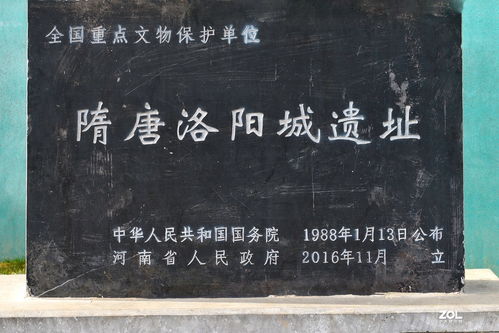 全国重点文物保护单位
隋唐洛阳城遗址
中华人民共和国国务院 1988年1月13日公布
河南省人民政府 2016年11月 立
ZOL